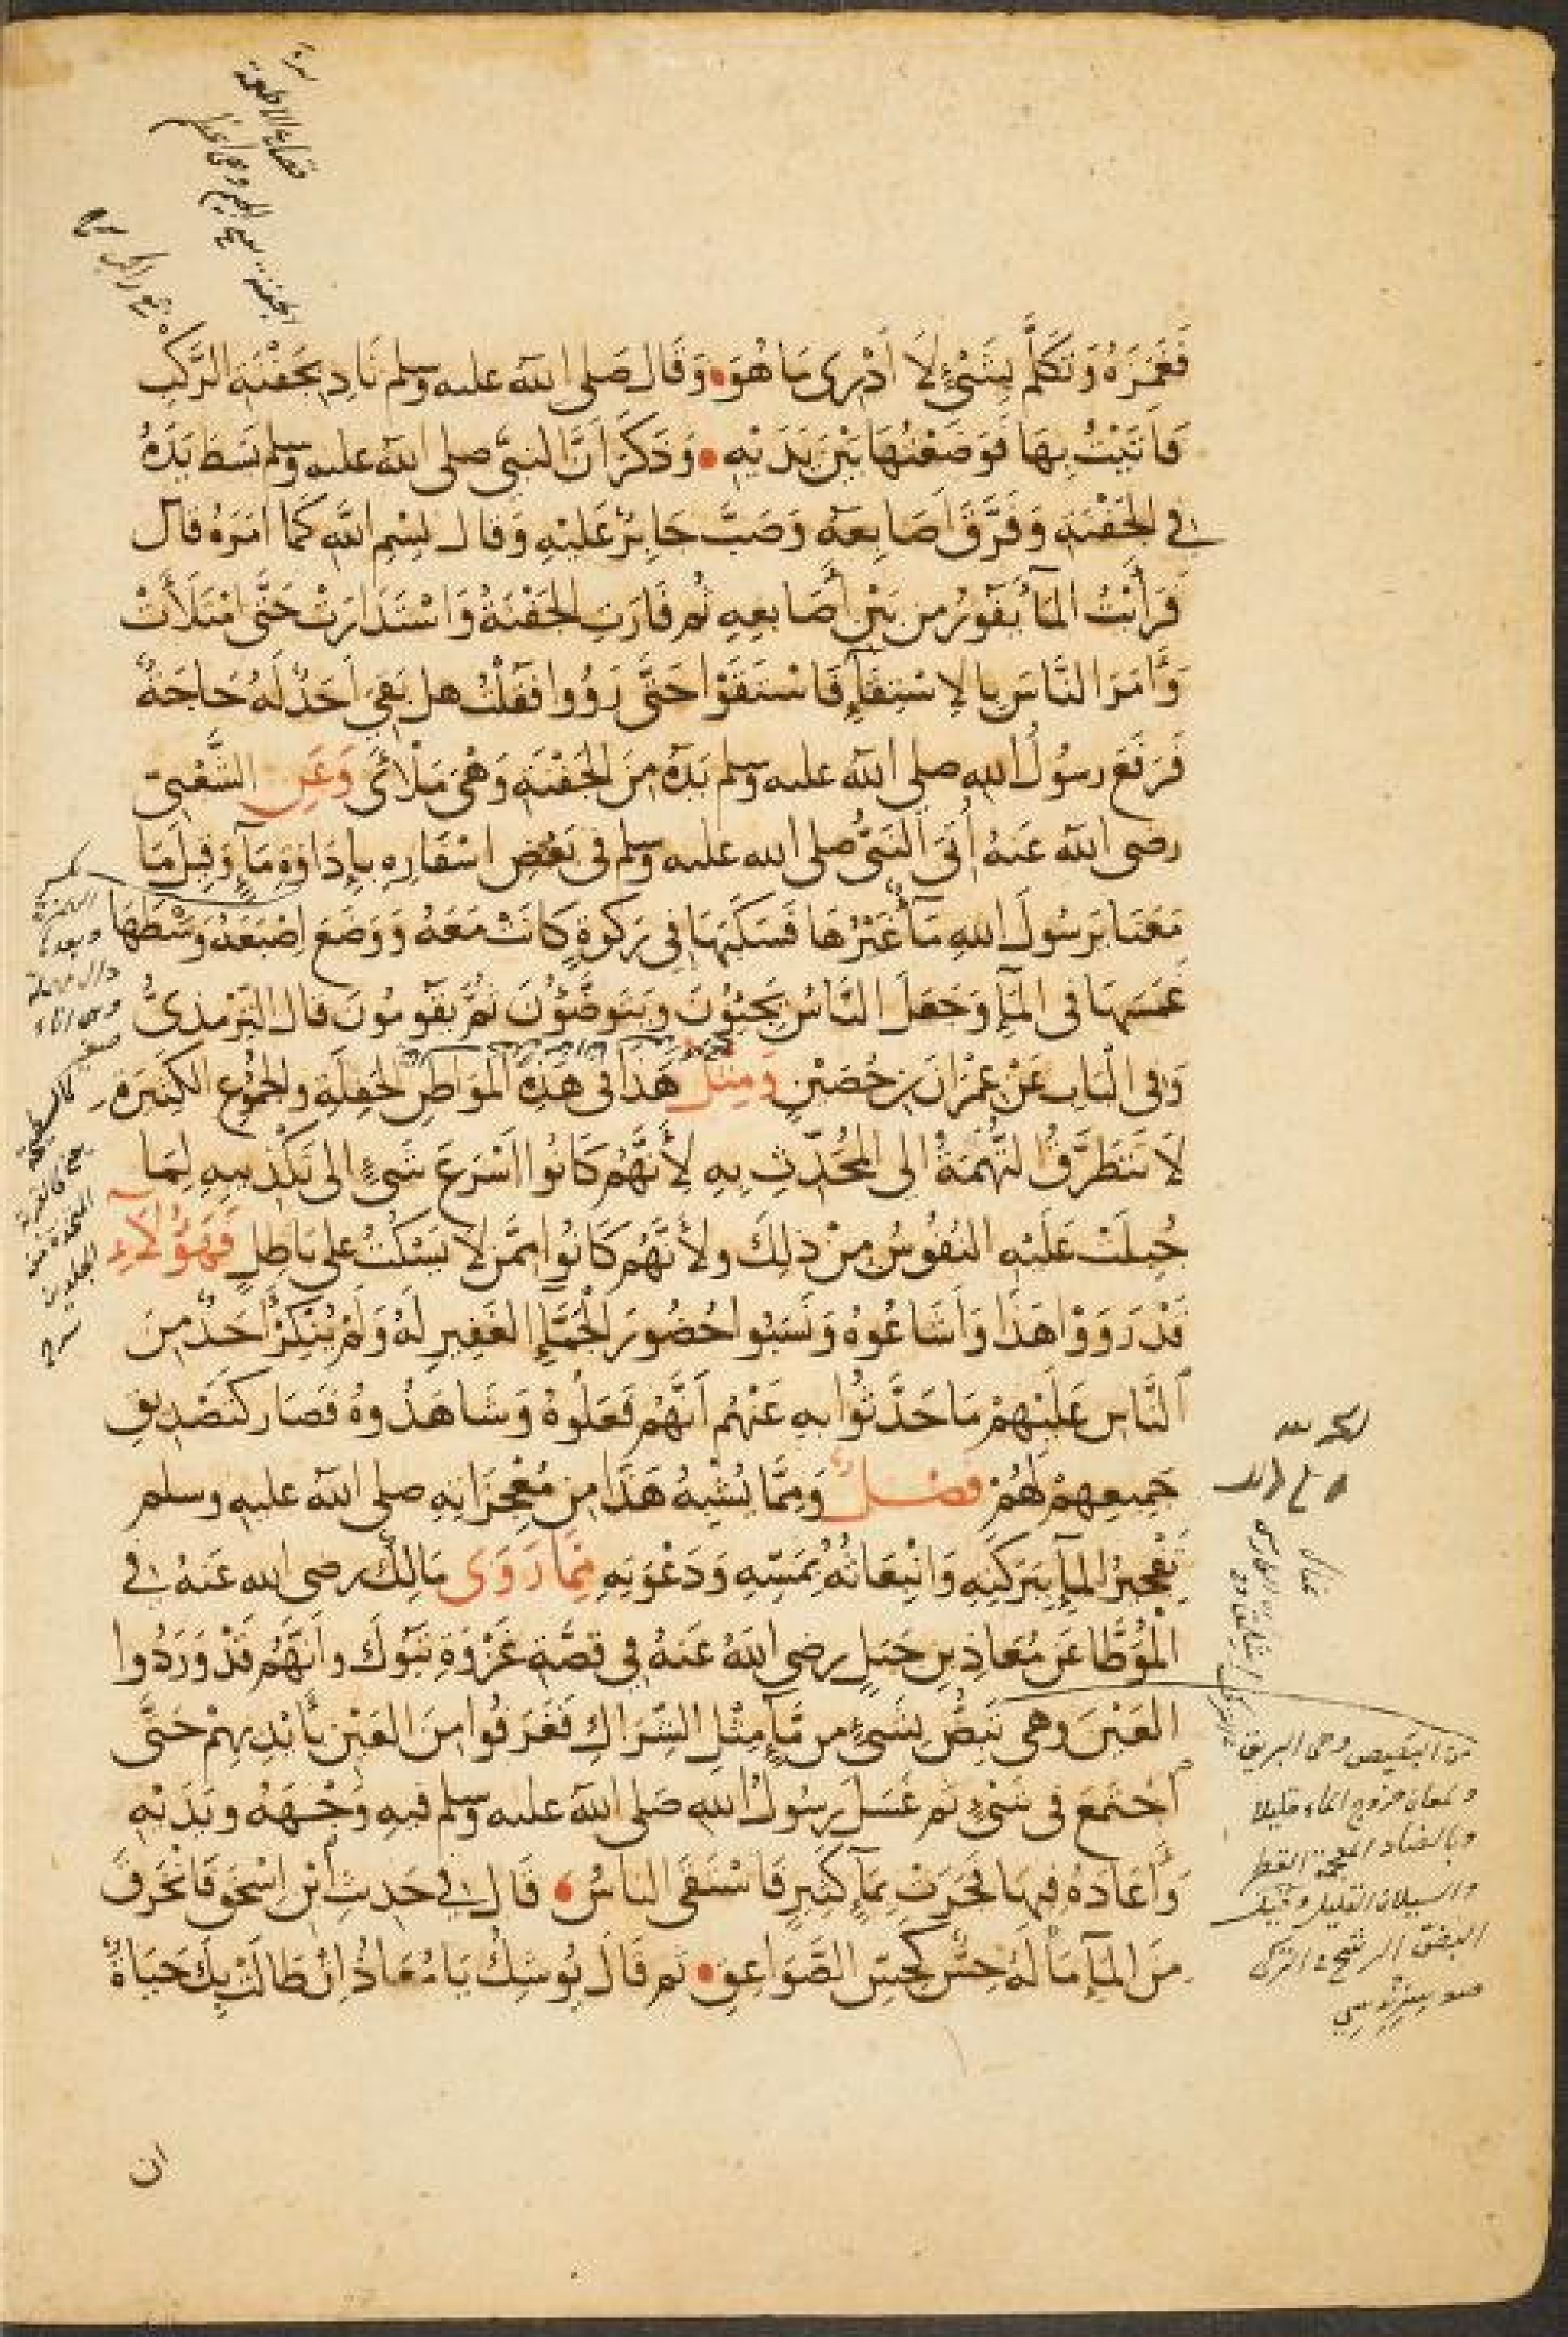 فَغَمَزَهُ وَتَكَلَّمَ بِشَىْءٍ لَا أَدْرِى مَا هُوَ وَقَالَ صَلى الله عليه وسلم نَادِ بِجَفْنَةِ الرَّكْبِ
فَاَتَيْتُ بِهَا فَوَضَعْتُهَا بَيْنَ يَدَيْهِ وَذَكَرَ اَنَّ النبىَّ صلى الله عليه وسلم بَسَطَ يَدَهُ
فِي الجَفْنَةِ وَفَرَّقَ اَصَابِعَهُ وَصَبَّ جَابِرٌ عَلَيْهِ وَقَال بِسْمِ اللهِ كَمَا اَمَرَهُ قال
فَرَأَيْتُ المَآءَ يَفُورُ مِن بَيْنِ أَصَابِعِهِ ثُم فَارَتِ الجَفْنَةُ وَاسْتَدَارَتْ حَتَّى امْتَلَأَتْ
وَأَمَرَ النَّاسَ بِالاِسْتِقَآءِ فَاسْتَقَوْا حَتَّى رَوُوا فَقُلْتُ هل بَقِىَ اَحَدٌ لَهُ حَاجَةٌ
فَرَفَعَ رسُولُ اللهِ صلى الله عليه وسلم يَدَهُ مِنَ الجَفْنَةِ وَهْىَ مَلْأَى وَعَنِ الشَّعْبِىّ
رضى الله عَنهُ أُتِىَ النَبىُّ صلى الله عليه وسلم فى بَعْضِ اسْفَارِهِ بِإِدَاوَةِ مَآءٍ وَقِيلَ مَا
مَعَنَا يَرَسُولَ اللهِ مَآءٌ غَيْرُهَا فَسَكَبَهَا فِى رَكْوَةٍ كَانَتْ مَعَهُ وَوَضَعَ اِصْبَعَهُ وَسْطَهَا
غَمَسَهَا فى المَآءِ وَجَعَلَ النَّاسُ يَجِيؤُنَ وَيَتَوَضَّؤُنَ ثُمَّ يَقُومُونَ قال التِّرْمِذِىُّ
وَفى الْبَابِ عَنْ عِمْرَانَ بْنِ حُصَيْنٍ وَمِثْلُ هَذَا فى هَذِهِ المَوَاطِنِ الحَفِلَةِ والجُمُوعِ الكَثِيرَةِ
لَا تَتَطَرَّقُ التُّهَمَةُ الى المُحَدِّثِ بِهِ لِأَنَّهُمْ كَانُوا اَسْرَعَ شَىْءٍ الى تَكْذِيبِهِ لِمَا
جُبِلَتْ عَلَيْهِ النُفُوسُ مِنْ ذَلِكَ ولأَنَّهُم كَانُوا مِمَّن لَا يَسْكُتُ على بَاطِلٍ فَهَؤُلَآءِ
قَدْ رَوَوْا هَذَا وَاَشَاعُوهُ وَنَسَبُوا حُضُورَ الْجَمَّآءِ الغَفِيرِ لَهُ وَلَمْ يُنْكِرْ اَحَدٌ مِنَ
النَّاسِ عَلَيْهِمْ مَا حَدَّثُوا بِهِ عَنْهُم اَنَّهُمْ فَعَلُوهُ وَشَاهَدُوهُ فَصَار كتَصْدِيقِ
جَمِيعِهِمْ لَهُمْ فصْلٌ وَمِمَّا يُشْبِهُ هَذَا مِن مُعْجِزَاتِهِ صلى الله عليه وسلم
تَفْجِيرُ المَآءِ بِبَرَكَتِهِ وَانْبِعَاثُهُ بِمَسِّهِ وَدَعْوَتِهِ مِمَّا رَوَى مَالِكٌ رضى الله عَنهُ فِى
الْمُوَطَّا عَن مُعَاذِ بنِ جَبَلٍ رضى اللهُ عَنهُ فِى قِصَّةِ غَزْوَةِ تَبُوكَ وانَّهُم قَدْ وَرَدُوا
العَيْنَ وهى تَبِضُّ بِشَىْءٍ مِن مَّآءٍ مِثْلِ الشِّرَاكِ فَغَرَفُوا مِنَ العَيْنِ بأَيْدِيهِمْ حَتَّى
اَجْتَمَعَ فى شَىْءٍ ثم غَسَلَ رَسُولُ اللهِ صَلى الله عليه وسلم فِيهِ وَجْهَهُ ويَدَيْهِ
وَأَعَادَهُ فِيهَا فَجَرَتْ بِمَآءٍ كَثِيرٍ فَاسْتَقَى الناسُ قَال فِى حَدِيثِ ابْنِ اسْحَقَ فَانْخَرَقَ
مِنَ المَآءِ مَا لَهُ حِسٌّ كَحِسِّ الصَّوَاعِقِ ثم قَالَ يُوشِكُ يَا مُعَاذُ اِنْ طَالَتْ بِكَ حَيَاةٌ
وبالضاد المعجمة القطر
والسيلان القليل وقيل
ان